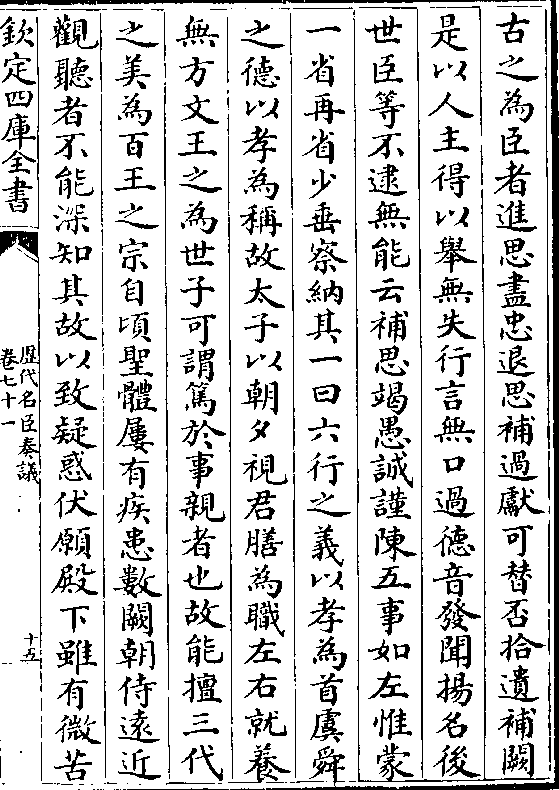 古之為臣者進思盡忠退思補過獻可替否拾遺補闕
是以人主得以舉無失行言無口過德音發聞揚名後
世臣等不逮無能云補思竭愚誠謹陳五事如左惟蒙
一省再省少垂察納其一曰六行之義以孝為首虞舜
之德以孝為稱故太子以朝夕視君膳為職左右就養
無方文王之為世子可謂篤於事親者也故能擅三代
之美為百王之宗自頃聖體屢有疾患數闕朝侍遠近
觀聽者不能深知其故以致疑惑伏願殿下雖有微苦
欽定四庫全書
歷代名臣奏議
卷七十一
十五